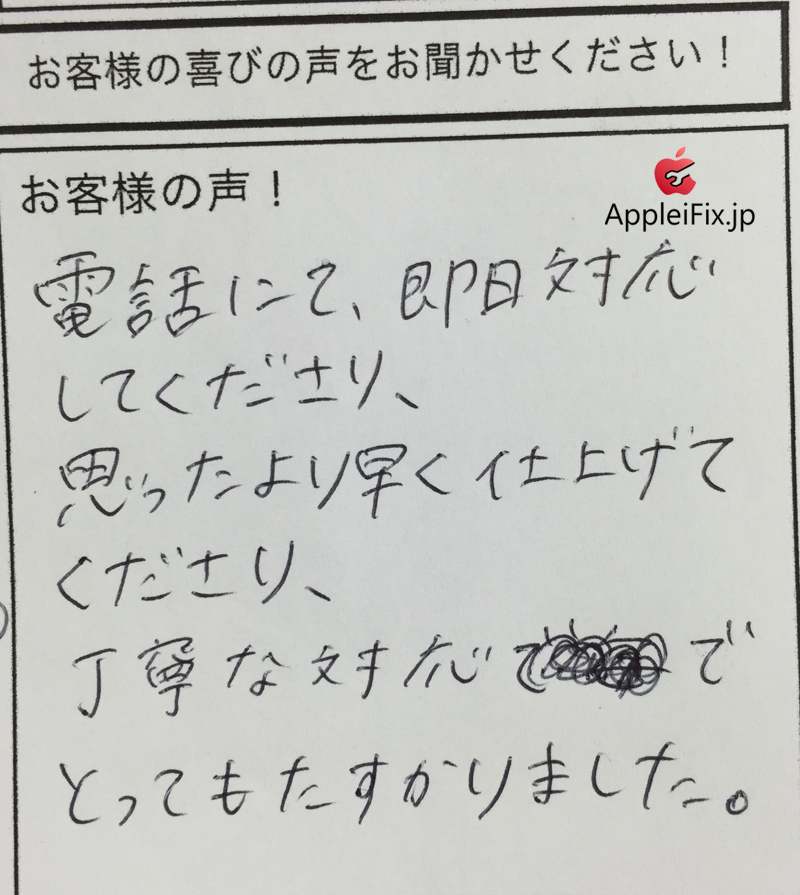 お客様の喜びの声をお聞かせください！
お客様の声！
AppleiFix.jp
電話にて、即日対応
してくださり、
思ったより早く仕上げて
くださり、
丁寧な対応で
とってもたすかりました。